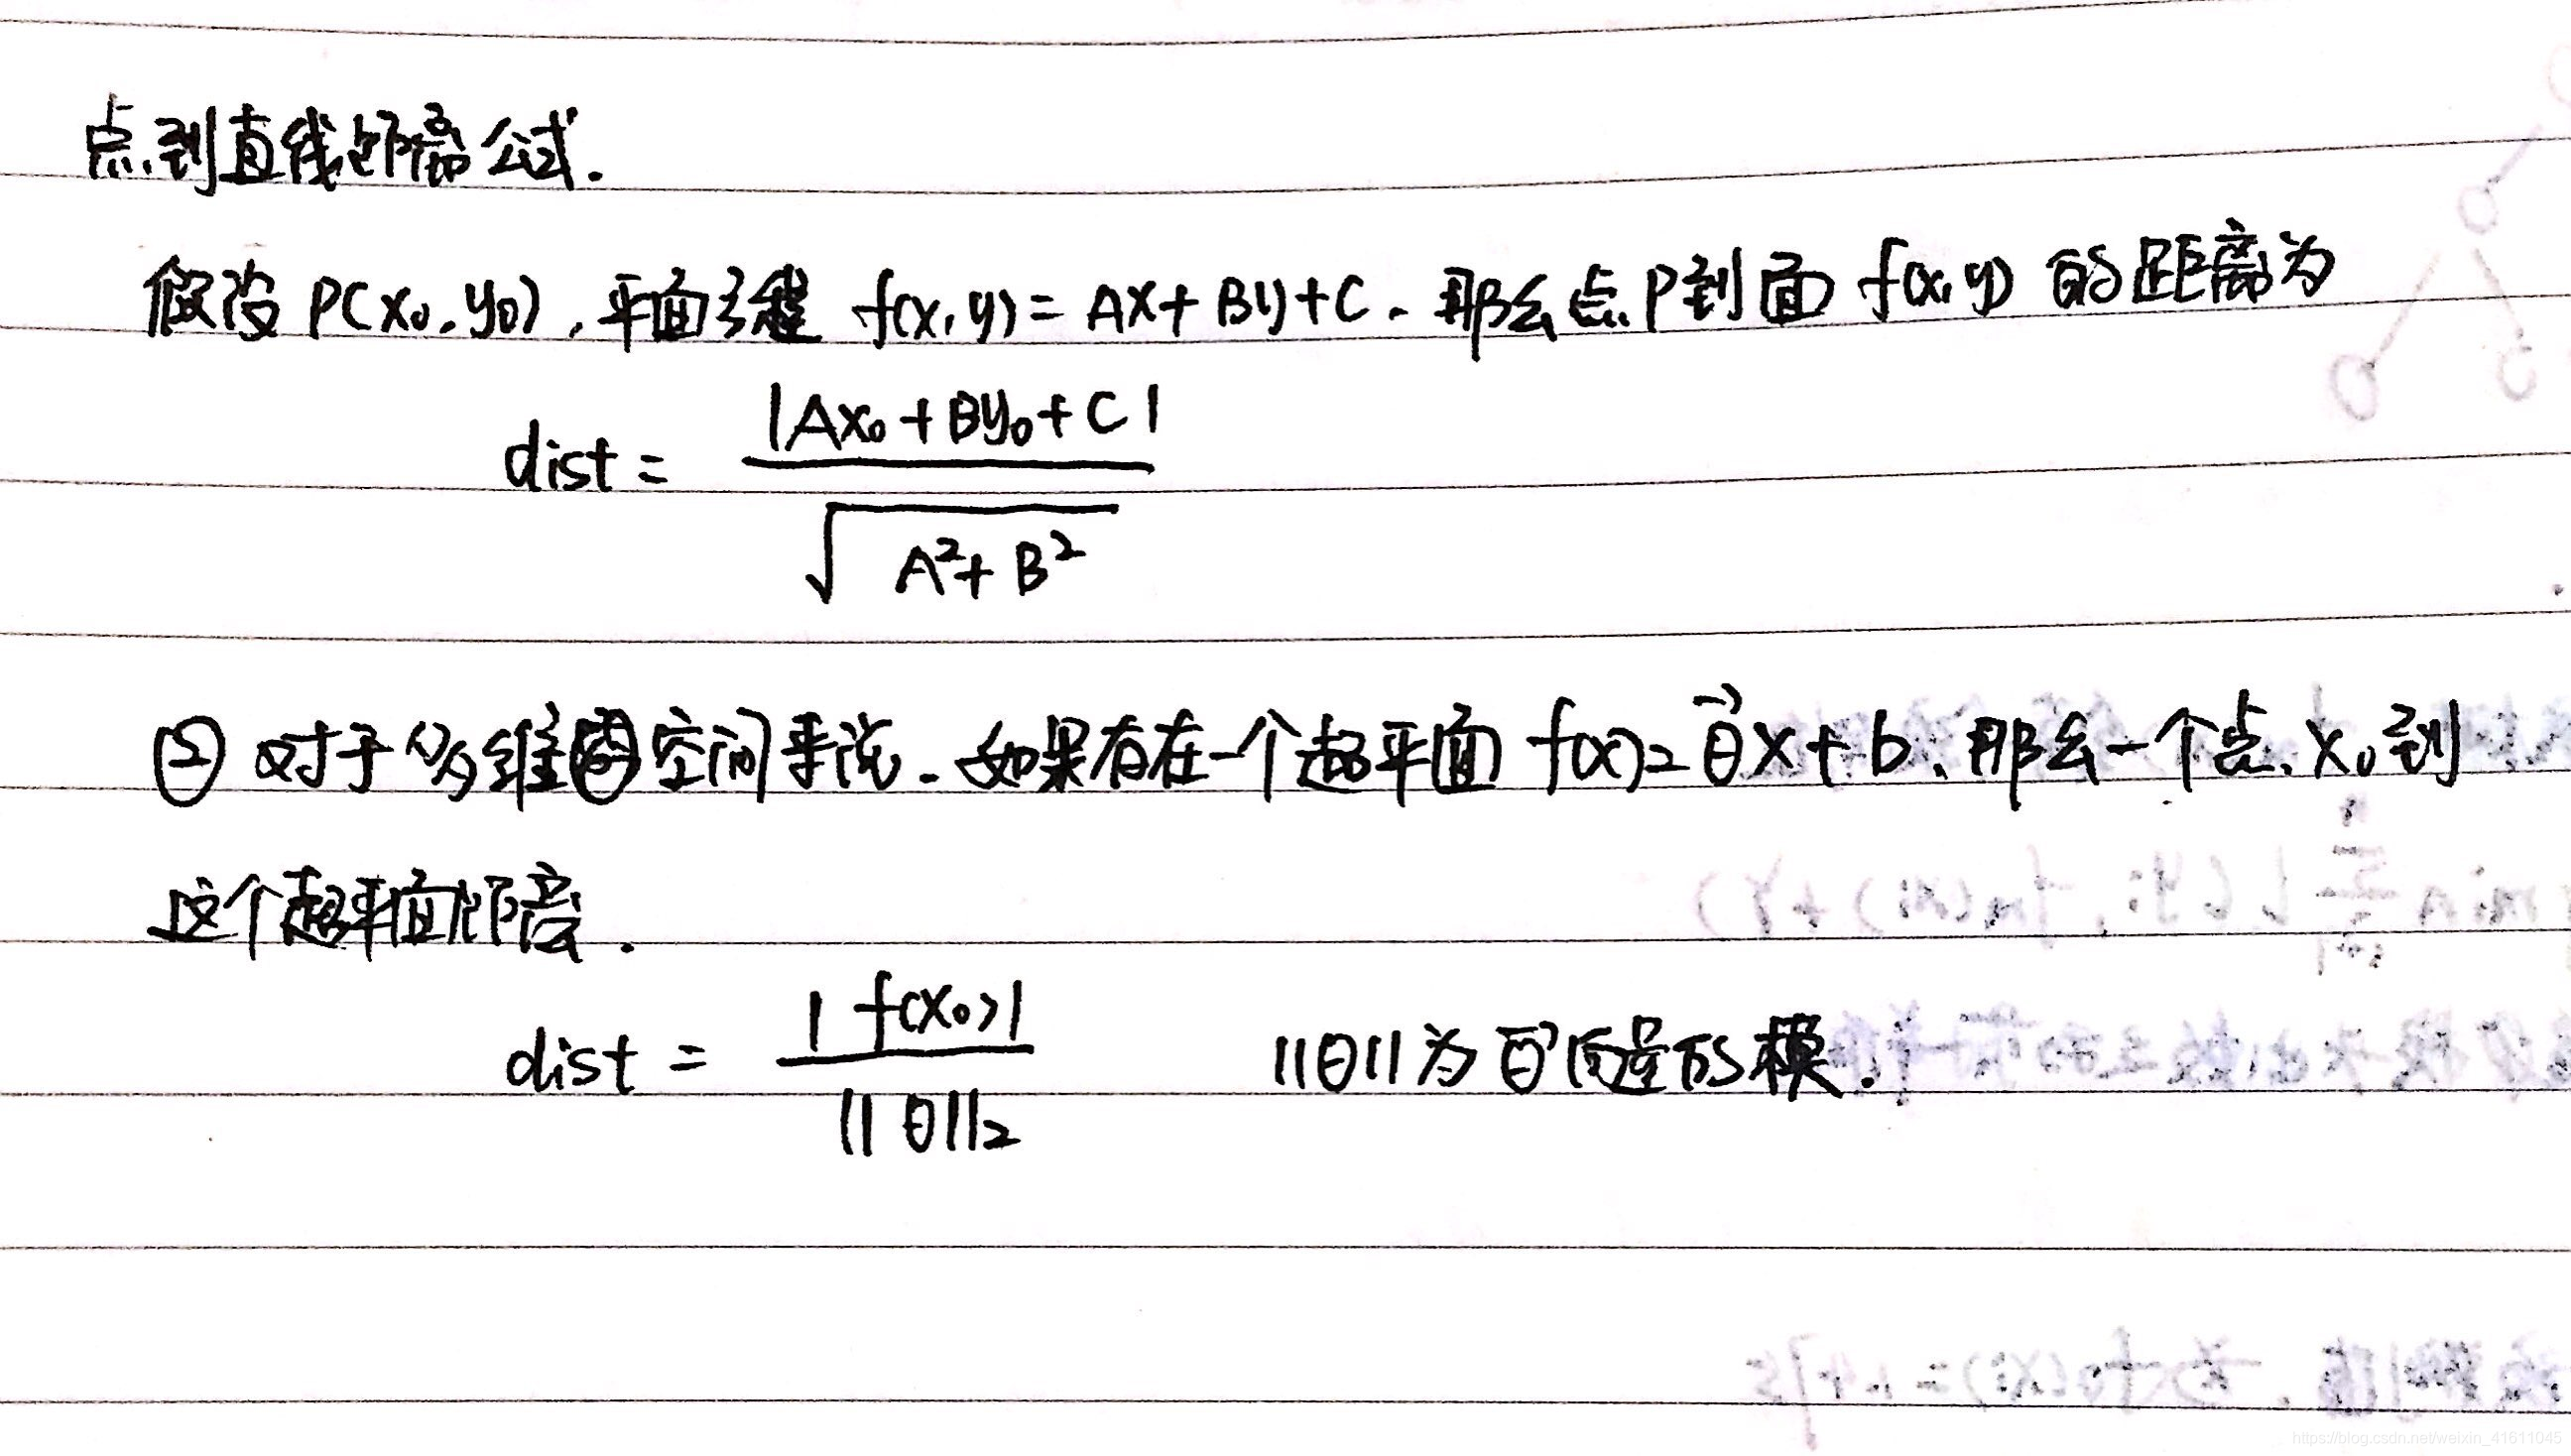 点到直线距离公式.
假设 P(x₀, y₀), 平面方程 f(x, y) = Ax + By + C. 那么点P到面 f(x, y) 的距离为
dist = |Ax₀ + By₀ + C| / √(A² + B²)
② 对于多维空间来说. 如果存在一个超平面 f(x) = θ⃗x + b, 那么一个点 x₀ 到
这个超平面距离.
dist = |f(x₀)| / ||θ||₂ ||θ||为θ⃗向量的模.
https://blog.csdn.net/weixin_41611045